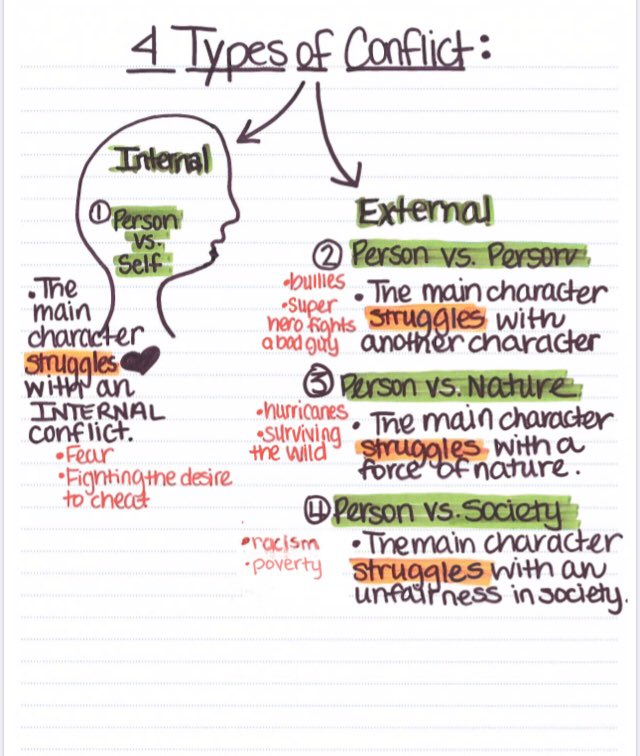 4 Types of Conflict:
Internal
① Person
vs.
Self
• The
main
character
struggles
with an
INTERNAL
conflict.
• Fear
• Fighting the desire
to cheat
External
② Person vs. Person
• bullies
• Super
hero fights
a bad guy
• The main character
struggles with
another character
③ Person vs. Nature
• hurricanes
• surviving
the wild
• The main character
struggles with a
force of nature.
④ Person vs. Society
• racism
• poverty
• The main character
struggles with an
unfairness in society.